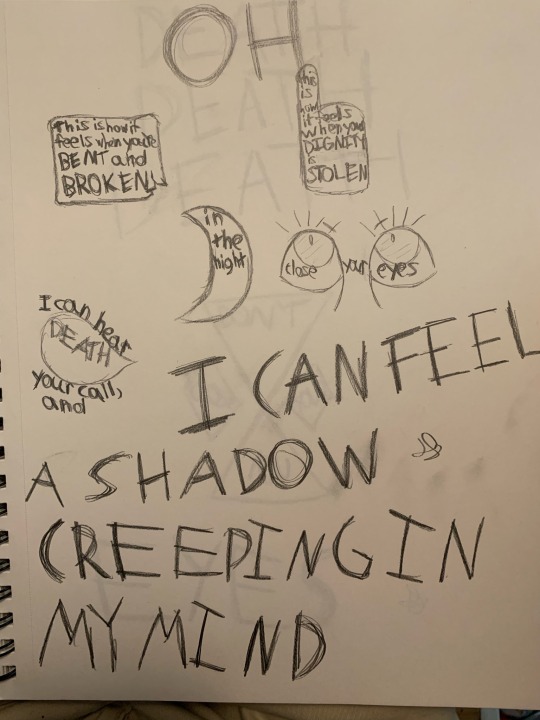 OH
This is how it
feels when you're
BENT and
BROKEN,
this
is
how
it feels
when your
DIGNITY
is
STOLEN
in
the
night
close your eyes
I can hear
DEATH
your call,
and
I CAN FEEL
A SHADOW
CREEPING IN
MY MIND